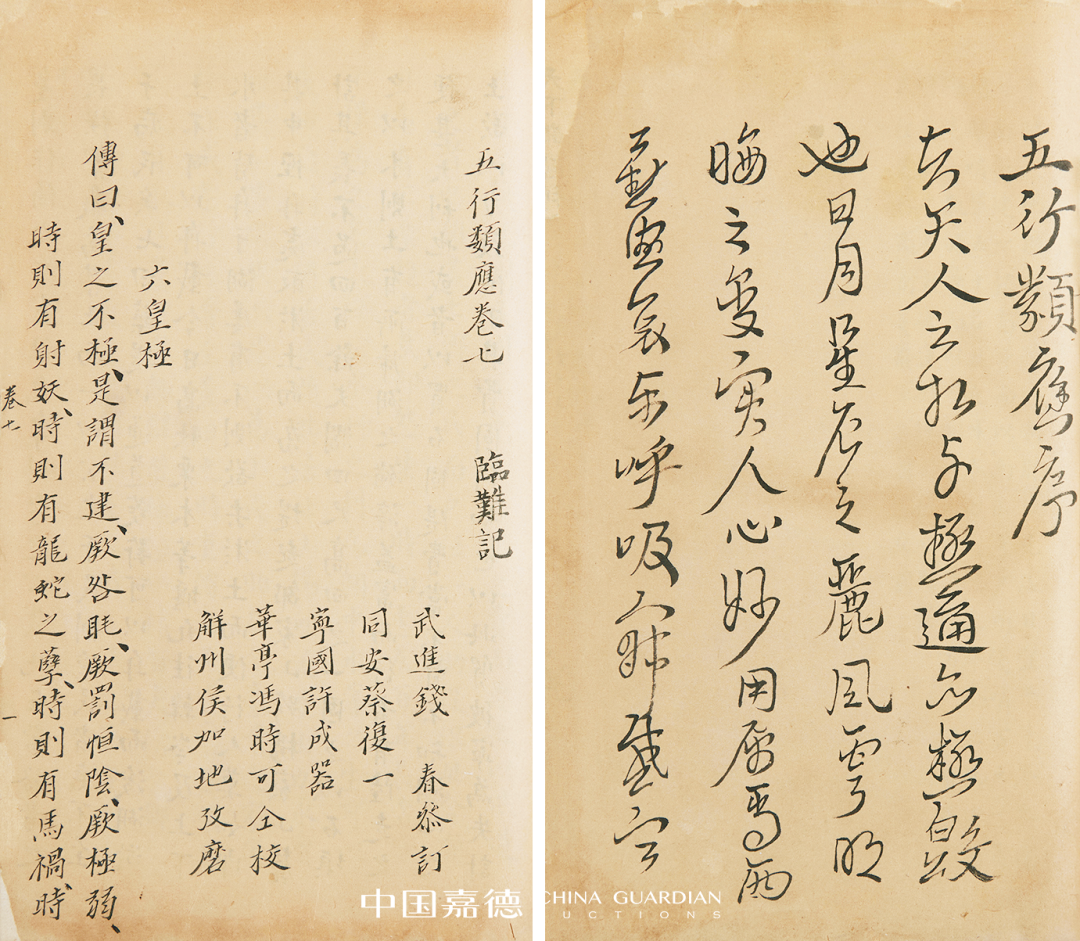 五行類應序
夫天人之相与極邇亦極皦
也日月星辰之麗風雩明
晦之變实人心妙用属焉而
哀樂呼吸
五行類應卷七 臨難記
武進錢 春叅訂
同安蔡復一
寧國許成器
華亭馮時可仝校
解州侯加地孜磨
六皇極
傳曰、皇之不極、是謂不建、厥咎眊、厥罰恒陰、厥極弱、
時則有射妖、時則有龍蛇之孽、時則有馬禍、時
卷七 一
中国嘉德 CHINA GUARDIAN
UCTIONS